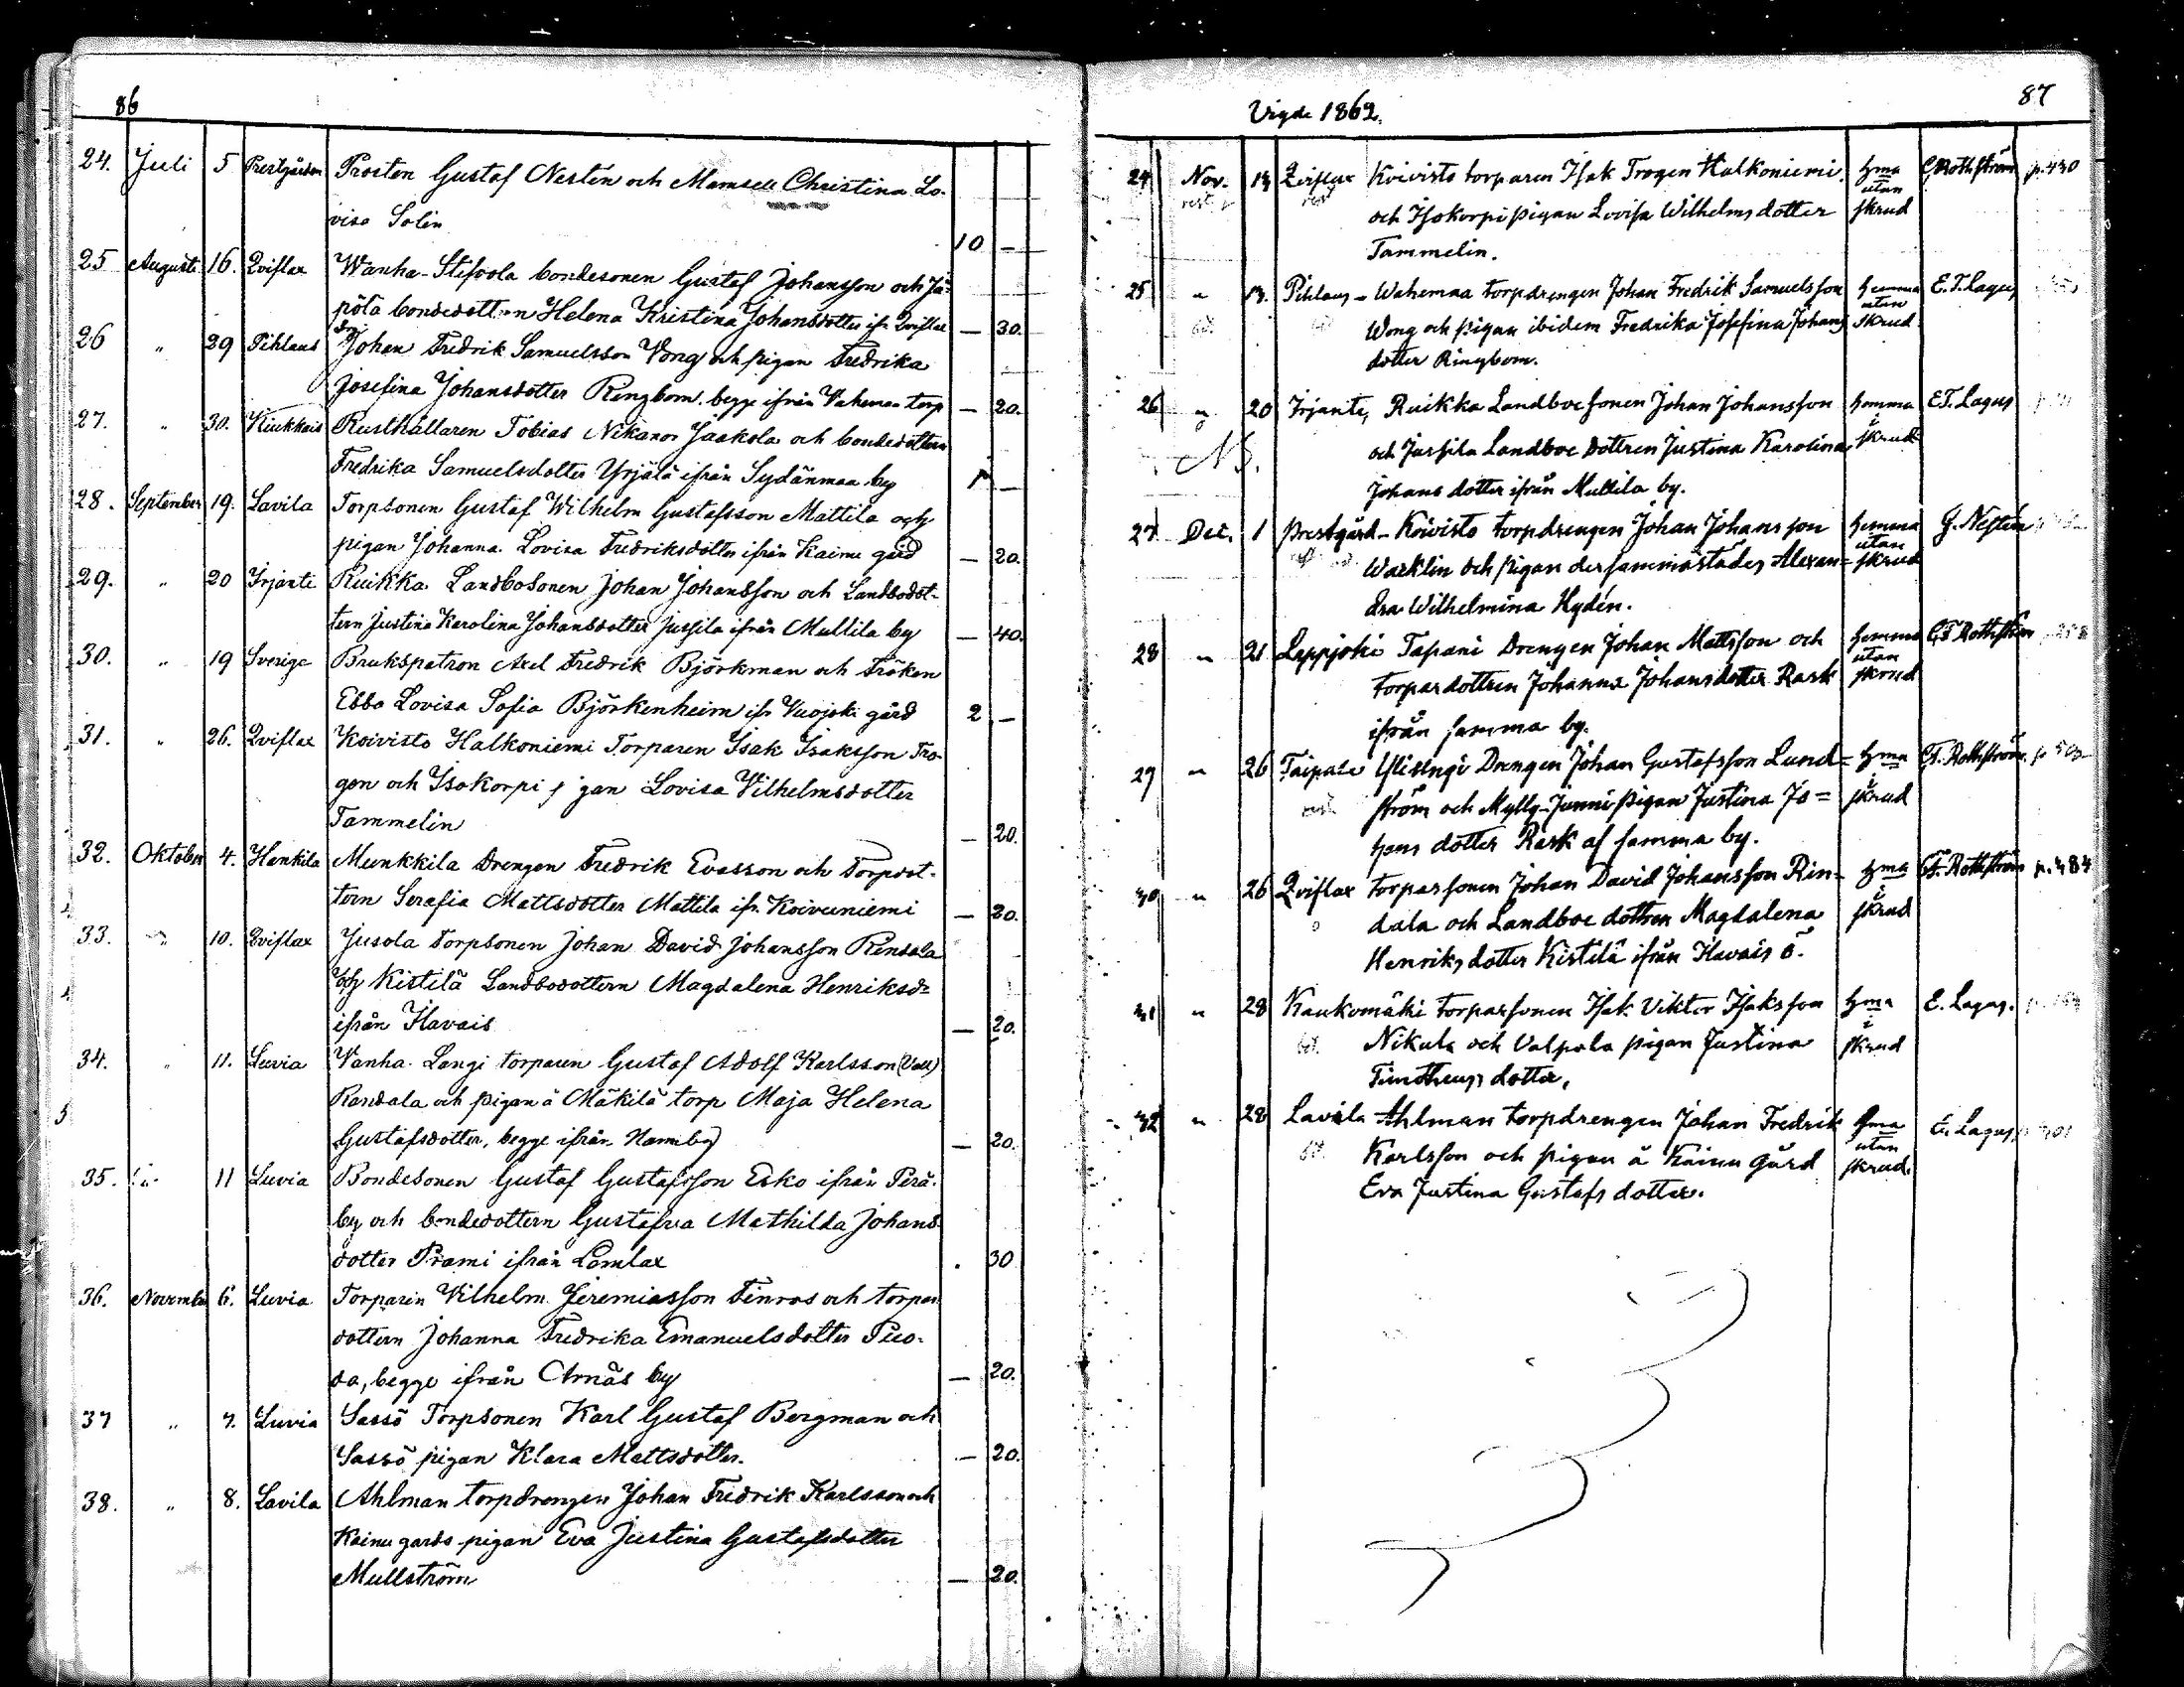 86
24. Juli 5 Prestgården Prosten Gustaf Nestén och Mamsell Christina Lo-
visa Solin 10 —
25 Augusti 16. Qviflax Wanha-Stefvola bondesonen Gustaf Johansson och Jä-
pölä bondedottern Helena Kristina Johansdotter ifr. Qviflax — 30.
26 " 29 Pihlaus Johan Fredrik Samuelsson Wong och pigan Fredrika
Josefina Johansdotter Ringbom begge ifrån Vahemaa torp — 20.
27. " 30. Kiukkais Rusthållaren Tobias Nikanor Jaakola och bondedottern
Fredrika Samuelsdotter Yrjälä ifrån Sydänmaa by 1 —
28. September 19. Lavila Torpsonen Gustaf Wilhelm Gustafsson Mattila och
pigan Johanna Lovisa Fredriksdotter ifrån Kainu gård — 20.
29. " 20 Irjante Ruikka Landbosonen Johan Johansson och Landbodot-
tern Justina Karolina Johansdotter Jussila ifrån Mullila by — 40.
30. " 19 Sverige Brukspatron Axel Fredrik Björkman och Fröken
Ebba Lovisa Sofia Björkenheim ifr. Vuojoki gård 2 —
31. " 26. Qviflax Koivisto Halkoniemi Torparen Isak Isaksson Tro-
gen och Isokorpi pigan Lovisa Vilhelmsdotter
Tammelin — 20.
32. Oktober 4. Hankila Munkkila Drengen Fredrik Evasson och Torpdot-
tern Serafia Mattsdotter Mattila ifr. Koivuniemi — 20.
33. " 10. Qviflax Jusola Torpsonen Johan David Johansson Rindala
och Kistilä Landbodottern Magdalena Henriksdr
ifrån Ilavais — 20.
34. " 11. Luvia Vanha-Langi torparen Gustaf Adolf Karlsson (Vall)
Randala och pigan å Mäkilä torp Maja Helena
Gustafsdotter, begge ifrån Hanniby — 20.
35. " 11 Luvia Bondesonen Gustaf Gustafsson Esko ifrån Perä-
by och bondedottern Gustafva Mathilda Johans-
dotter Prami ifrån Lemlax . 30
36. November 6. Luvia Torparen Vilhelm Jeremiasson Finros och torpar
dottern Johanna Fredrika Emanuelsdotter Puo-
sa, begge ifrån Arnäs by — 20.
37 " 7. Luvia Sassö Torpsonen Karl Gustaf Bergman och
Sassö pigan Klara Mattsdotter. — 20.
38. " 8. Lavila Ahlman torpdrengen Johan Fredrik Karlsson och
Kainu gards pigan Eva Justina Gustafsdotter
Mullström — 20.
Vigde 1862.
87
24 Nov. 13 Qviflax Koivisto torparen Isak Trogen Halkoniemi hma utan skrud Rothström p. 430
och Isokorpi pigan Lovisa Wilhelms dotter
Tammelin.
25 " 13. Pihlaus - Wahemaa torpdrengen Johan Fredrik Samuelsson hemma utan skrud E. T. Lagus
Wong och pigan ibidem Fredrika Josefina Johans
dotter Ringbom.
26 " 20 Irjante, Ruikka Landboe sonen Johan Johansson hemma i skrud E.T. Lagus
och Jussila Landboe dottren Justina Karolina
Johans dotter ifrån Mullila by.
27 Dec. 1 Prestgård - Koivisto torpdrengen Johan Johansson hemma utan skrud G. Nestén
Warklin och pigan dersammastädes Alexan=
dra Wilhelmina Hydén.
28 " 21 Lappjoki Tapani Drengen Johan Mattsson och hemma utan skrud Rothström
torpardottren Johanna Johansdotter Rask
ifrån samma by.
29 " 26 Taipale Ylistngi Drengen Johan Gustafsson Lund= hma i skrud Rothström
ström och Mylly-Junni pigan Justina Jo=
hans dotter Rask af samma by.
30 " 26 Qviflax torparsonen Johan David Johansson Rin- hma i skrud Rothström p. 484
dala och Landboe dottren Magdalena
Henriks dotter Kistilä ifrån Ilavais ö.
31 " 28 Kaukomäki torparsonen Isak Viktor Isaksson hma i skrud E. Lagus.
Nikula och Valpola pigan Justina
Timotheus dotter,
32 " 28 Lavila Ahlman torpdrengen Johan Fredrik hma utan skrud E. Lagus
Karlsson och pigan å Kainu Gård
Eva Justina Gustafs dotter.